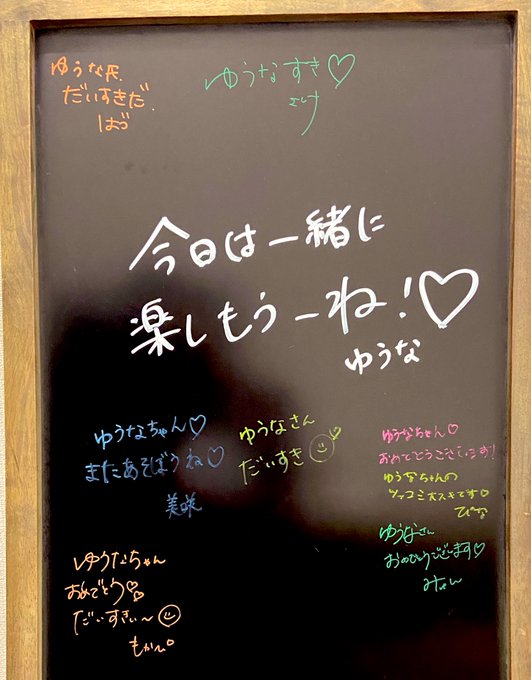 ゆうな氏.
だいすきだ.
ばづ
ゆうなすき♡
今日は一緒に
楽しもうーね!♡
ゆうな
ゆうなちゃん♡
またあそぼうね♡
美咲
ゆうなさん
だいすき
ゆうなちゃん♡
おめでとうございます!
ゆうなちゃんの
ツッコミ大スキです♡
ぴな
ゆうなさん
おめでとうございます♡
みゃん
ゆうなちゃん
おめでとう♡♡
だいすきぃ〜